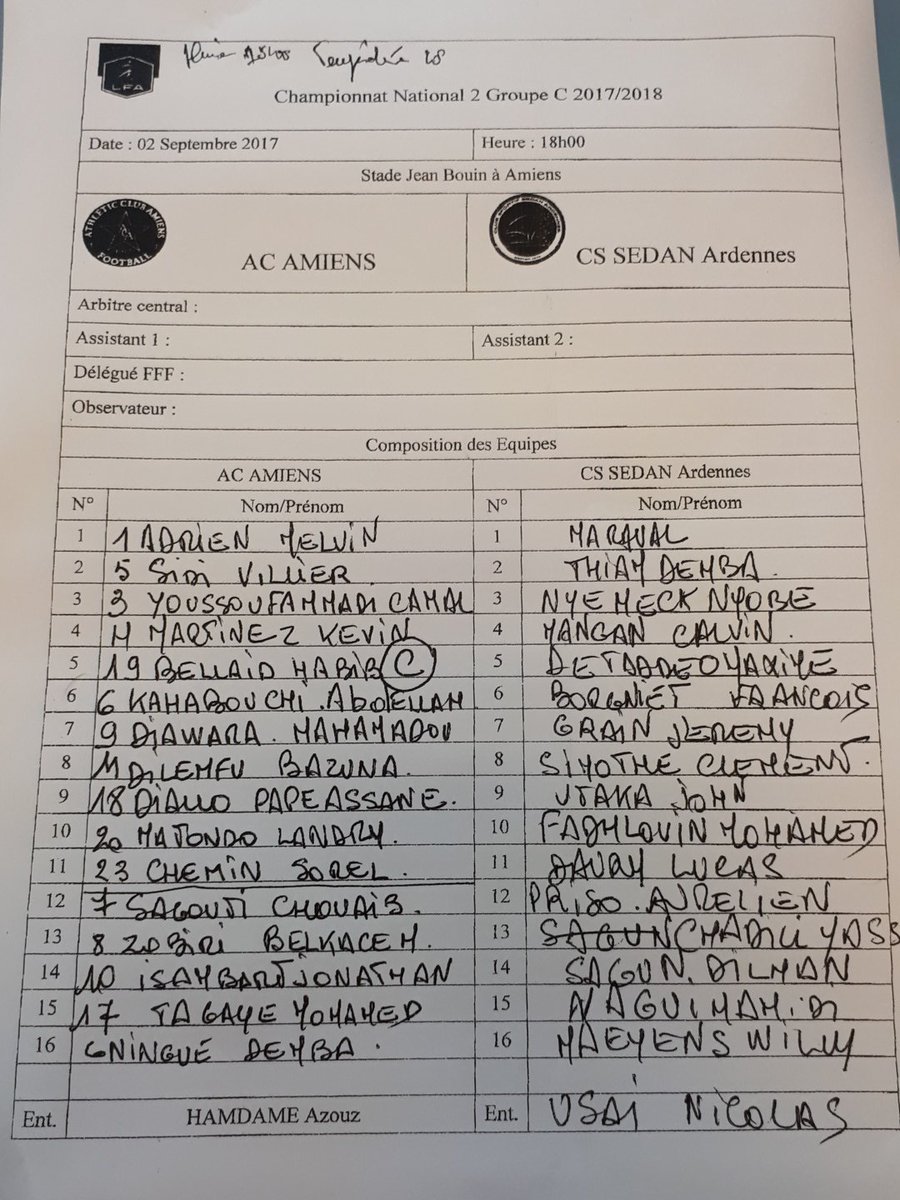 LFA
Championnat National 2 Groupe C 2017/2018
Date : 02 Septembre 2017 Heure : 18h00
Stade Jean Bouin à Amiens
ATHLETIC CLUB AMIENS FOOTBALL
AC AMIENS CS SEDAN Ardennes
Arbitre central :
Assistant 1 : Assistant 2 :
Délégué FFF :
Observateur :
Composition des Equipes
AC AMIENS CS SEDAN Ardennes
N° Nom/Prénom N° Nom/Prénom
1 1 ADRIEN MELVIN 1 MARAVAL
2 5 SIDI VILLIER 2 THIAM DEMBA.
3 3 YOUSSOUF AMMADI CAMAL 3 NYEMECK NYOBE
4 MARTINEZ KEVIN 4 MANGAN CALVIN.
5 19 BELLAID HABIB C 5 DETADDEO MAXIME
6 6 KAHABOUCHI. ABDELLAH 6 BORGNIET FRANCOIS
7 9 DIAWARA. MAHAMADOU 7 GRAIN JEREMY
8 11 DILEMFU BAZUNA. 8 SIMOTHE CLEMENT.
9 18 DIALLO PAPE ASSANE. 9 UTAKA JOHN
10 20 MATONDO LANDRY. 10 FADHLOUN MOHAMED
11 23 CHEMIN SOREL. 11 DAURY LUCAS
12 7 SAGOUTI CHOUAIB. 12 PRISO. AURELIEN
13 8 ZOBIRI BELKACEM. 13 SAGUN CHADILI YASS
14 10 ISAMBART JONATHAN 14 SAGUN. DILMAN
15 17 TAGAYE MOHAMED 15 NAGUI HAMIDI
16 GNINGUE DEMBA. 16 MAEYENS WILLY
Ent. HAMDAME Azouz Ent. USAI NICOLAS